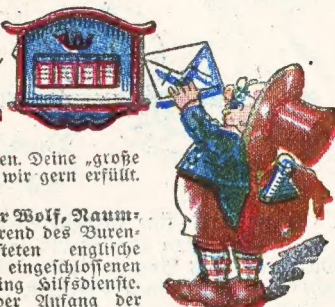 en. Deine „große
wir gern erfüllt.
r Wolf, Naum-
rend des Buren-
steten englische
eingeschlossenen
ing Hilfsdienste.
er Anfang der